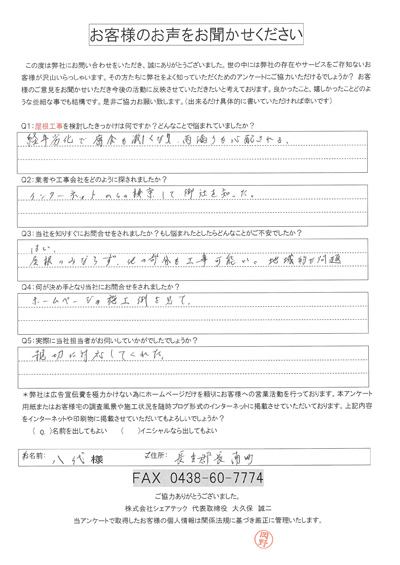 お客様のお声をお聞かせください
この度は弊社にお問い合わせをいただき、誠にありがとうございました。世の中には弊社の存在やサービスをご存知ないお
客様が沢山いらっしゃいます。その方たちに弊社をよく知っていただくためのアンケートにご協力いただけるでしょうか？ お客
様のご意見をお聞かせいただき今後の活動に反映させていただきたいと考えております。良かったこと。嬉しかったことどのよ
うな些細な事でも結構です。是非ご協力お願い致します。（出来るだけ具体的に書いていただければ幸いです）
Q1:屋根工事を検討したきっかけは何ですか？どんなことで悩まれていましたか？
経年劣化で 雨漏りも心配される。
Q2:業者や工事会社をどのように探されましたか？
インターネットからの検索して 御社を知った。
Q3:当社を知りすぐにお問合せをされましたか？もし悩まれたとしたらどんなことがご不安でしたか？
はい。
屋根のみならず、他の部分も工事可能か。地域的な問題
Q4:何が決め手となり当社にお問合せをされましたか？
ホームページの施工例を見て。
Q5:実際に当社担当者がお伺いしていかがでしたでしょうか？
親切に対応してくれた。
＊弊社は広告宣伝費を極力かけない為にホームページだけを頼りにお客様への営業活動を行っております。本アンケート
用紙またはお客様宅の調査風景や施工状況を随時ブログ形式のインターネットに掲載させていただいております。上記内容
をインターネットや印刷物に掲載させていただいてもよろしいでしょうか？
（ o ）名前を出してもよい （ ）イニシャルなら出してもよい
お名前： 八代 様 ご住所： 長生郡長南町
FAX 0438-60-7774
ご協力ありがとうございました。
株式会社シェアテック 代表取締役 大久保 誠二
当アンケートで取得したお客様の個人情報は関係法規に基づき厳正に管理いたします。
岡野